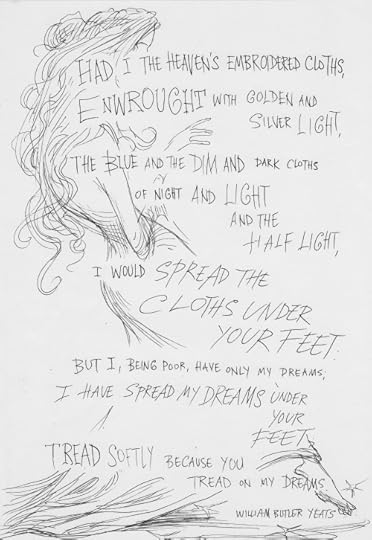 HAD I THE HEAVEN'S EMBROIDERED CLOTHS,
ENWROUGHT WITH GOLDEN AND
SILVER LIGHT,
THE BLUE AND THE DIM AND DARK CLOTHS
OF NIGHT AND LIGHT
AND THE
HALF LIGHT,
I WOULD SPREAD THE
CLOTHS UNDER
YOUR FEET.
BUT I, BEING POOR, HAVE ONLY MY DREAMS;
I HAVE SPREAD MY DREAMS UNDER
YOUR
FEET.
TREAD SOFTLY BECAUSE YOU
TREAD ON MY DREAMS
WILLIAM BUTLER YEATS